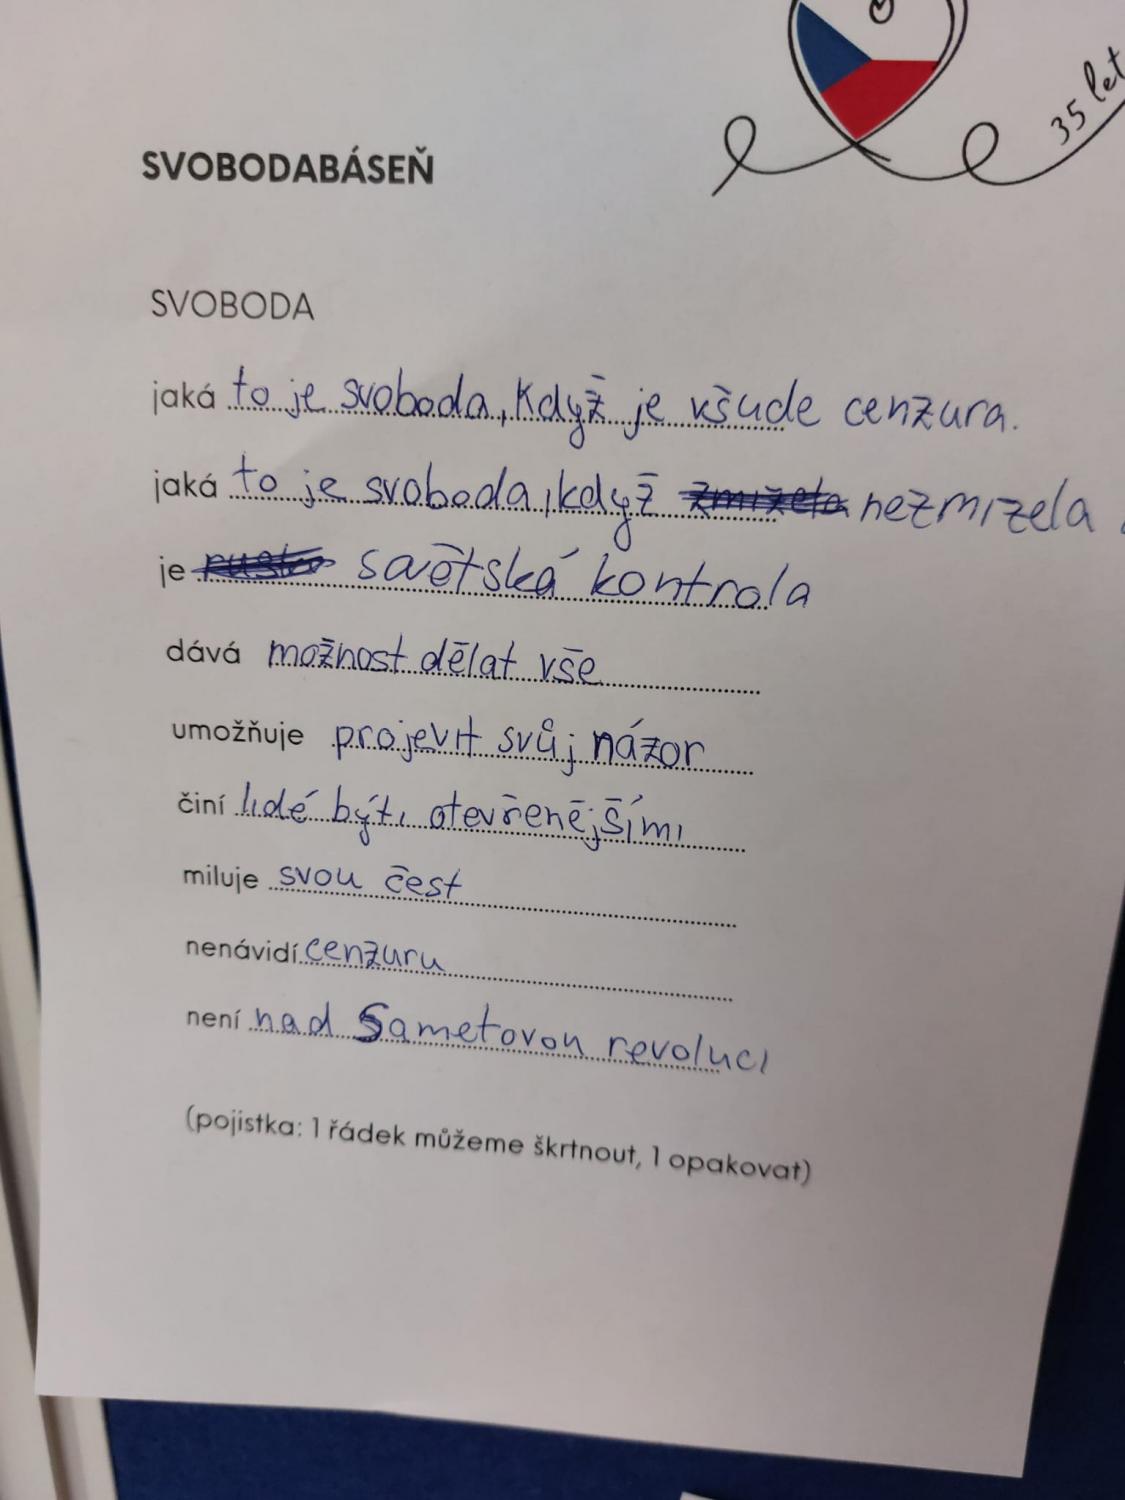 35 let
SVOBODABÁSEŇ
SVOBODA
jaká to je svoboda, Když je všude cenzura.
jaká to je svoboda, když zmizela nezmizela
je savětská kontrola
dává možnost dělat vše
umožňuje projevit svůj názor
činí lidé být, otevřenějšími
miluje svou čest
nenávidí cenzuru
není nad Sametovou revoluci
(pojistka: 1 řádek můžeme škrtnout, 1 opakovat)